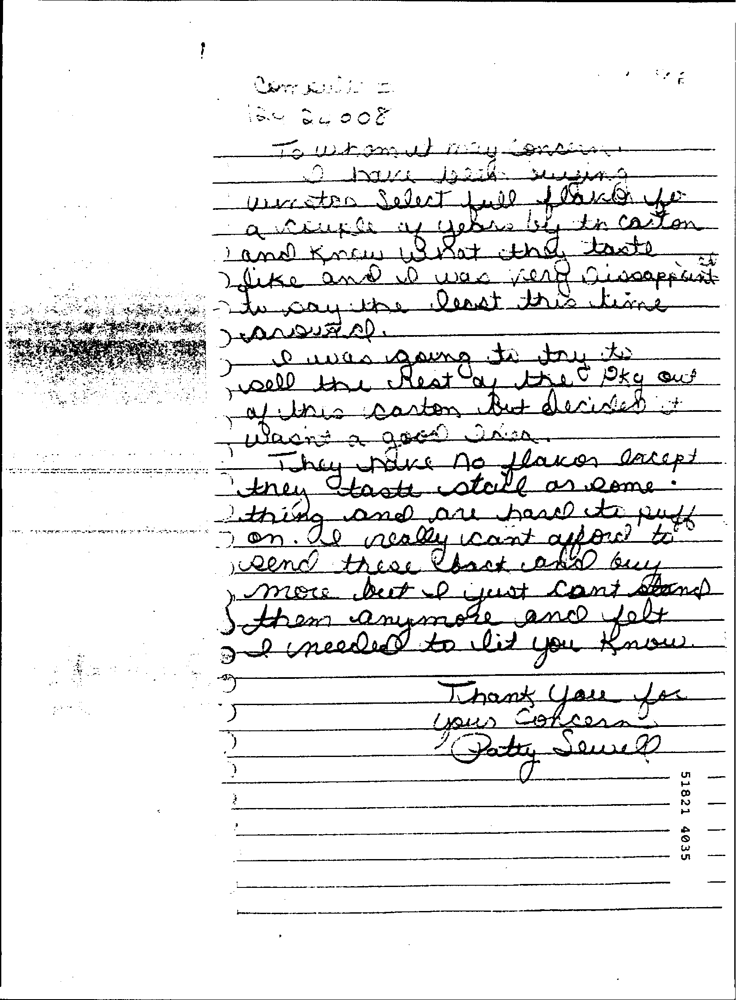 24008
To whom it may concern.
I have been buying
Winston Select full flavor for
a couple of years by th carton
and know what they taste
like and I was very dissappoint
ed
to say the least this time
around.
I was going to try to
sell the rest of the pkg out
of this carton but decided it
wasnt a good idea.
They have no flavor except
they taste stall or some
thing and are hard to puff
on. I really cant afford to
send these back and buy
more but I just cant stand
them anymore and felt
I needed to let you know.
Thank you for
your concern
Patty Sewell
51821 4035